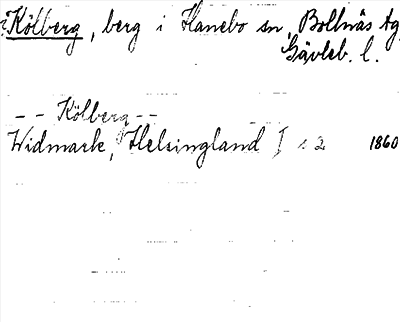 Kölberg, berg i Hanebo sn, Bollnäs tg
Gävleb. l.
-- Kölberg --
Widmark, Helsingland I s 2 1860